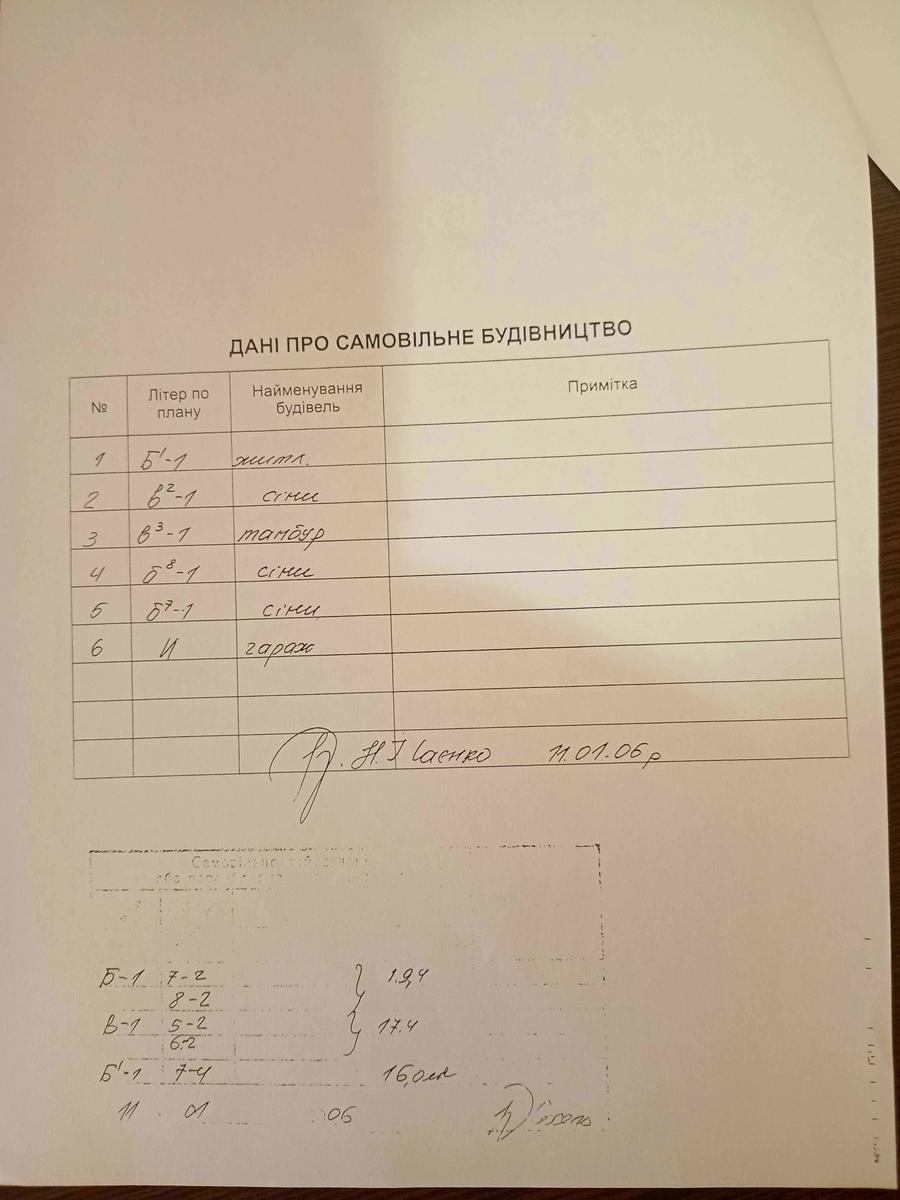 ДАНІ ПРО САМОВІЛЬНЕ БУДІВНИЦТВО
№ Літер по плану Найменування будівель Примітка
1 Б'-1 житл.
2 в²-1 сіни
3 в³-1 тамбур
4 б⁸-1 сіни
5 б⁷-1 сіни
6 И гараж
Н. Ісаєнко 11.01.06р
Б-1 7-2 19,4
8-2
В-1 5-2 17.4
6-2
Б'-1 7-4 16,0
11 01 06